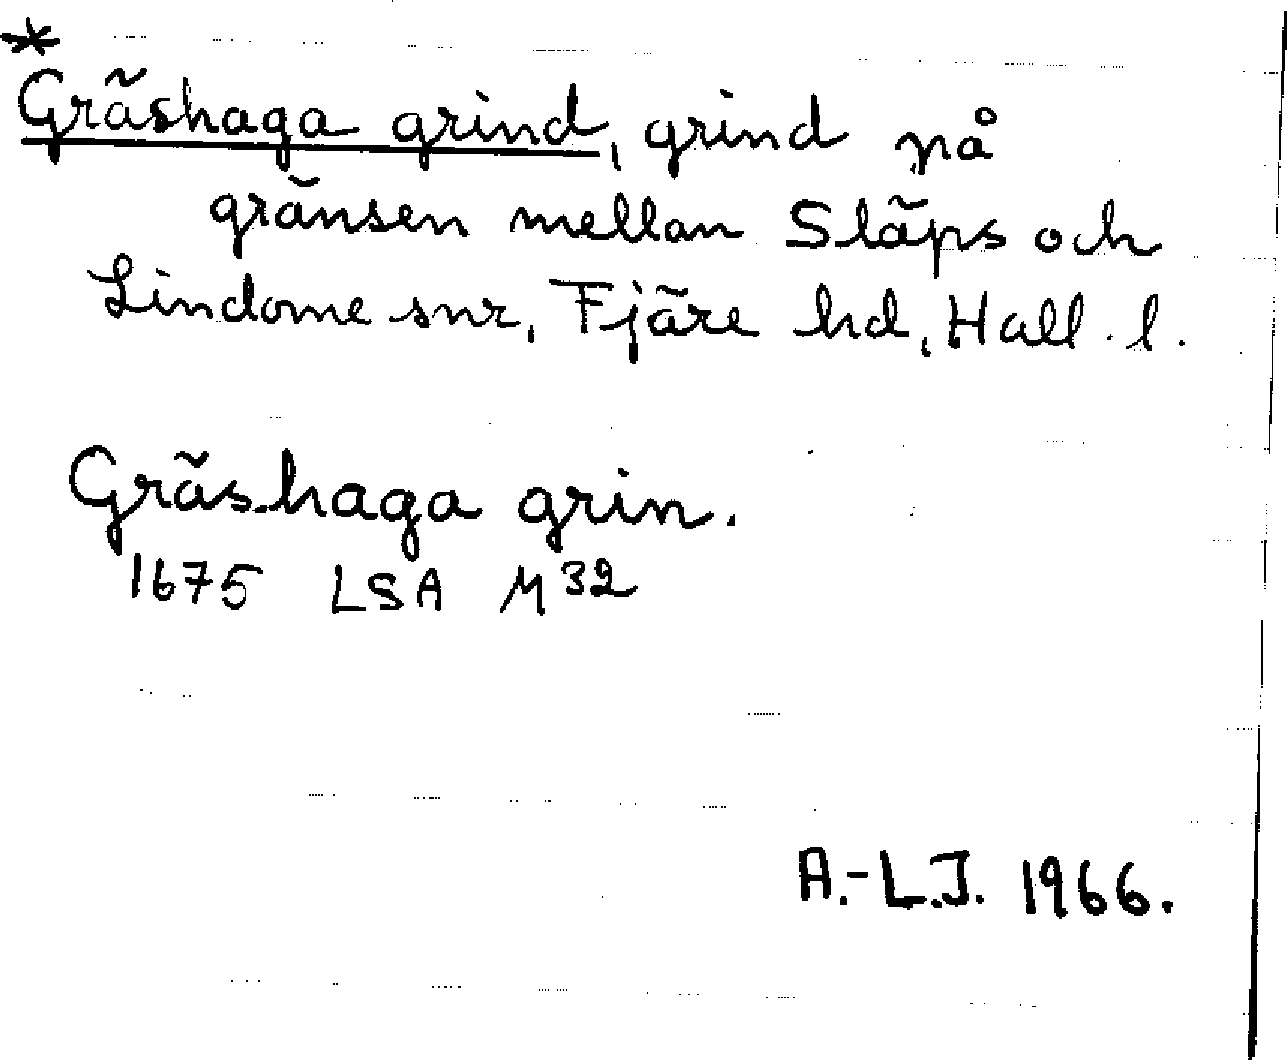 *
Gräshaga grind, grind på
gränsen mellan Släps och
Lindome snr, Fjäre hd, Hall. l.
Gräs-haga grin.
1675 LSA M 32
A.-L.J. 1966.